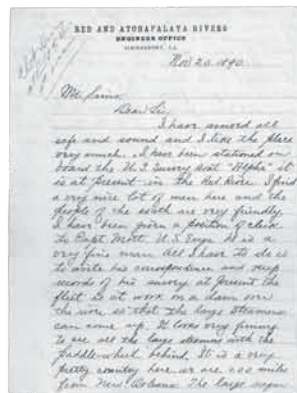 RED AND ATCHAFALAYA RIVERS
ENGINEER OFFICE
SIMMESPORT, LA.
Nov 20, 1890.
Mr.
Dear Sir,
I have arrived all
safe and sound and I like the place
very much. I have been stationed on
board the U.S. Survey boat "Alpha" it
is at present in the Red River. I find
a very nice lot of men here and the
people of the south are very friendly
I have been given a position of clerk
to Capt. Mott, U.S. Engr. He is a
very fine man. All I have to do is
to write his correspondence and keep
records of his survey at present the
fleet is at work on a dam over
the river so that the large steamers
can come up. It looks very funny
to see all the large steamers with the
paddle-wheel behind. It is a very
pretty country here we are 200 miles
from New Orleans. The large sugar